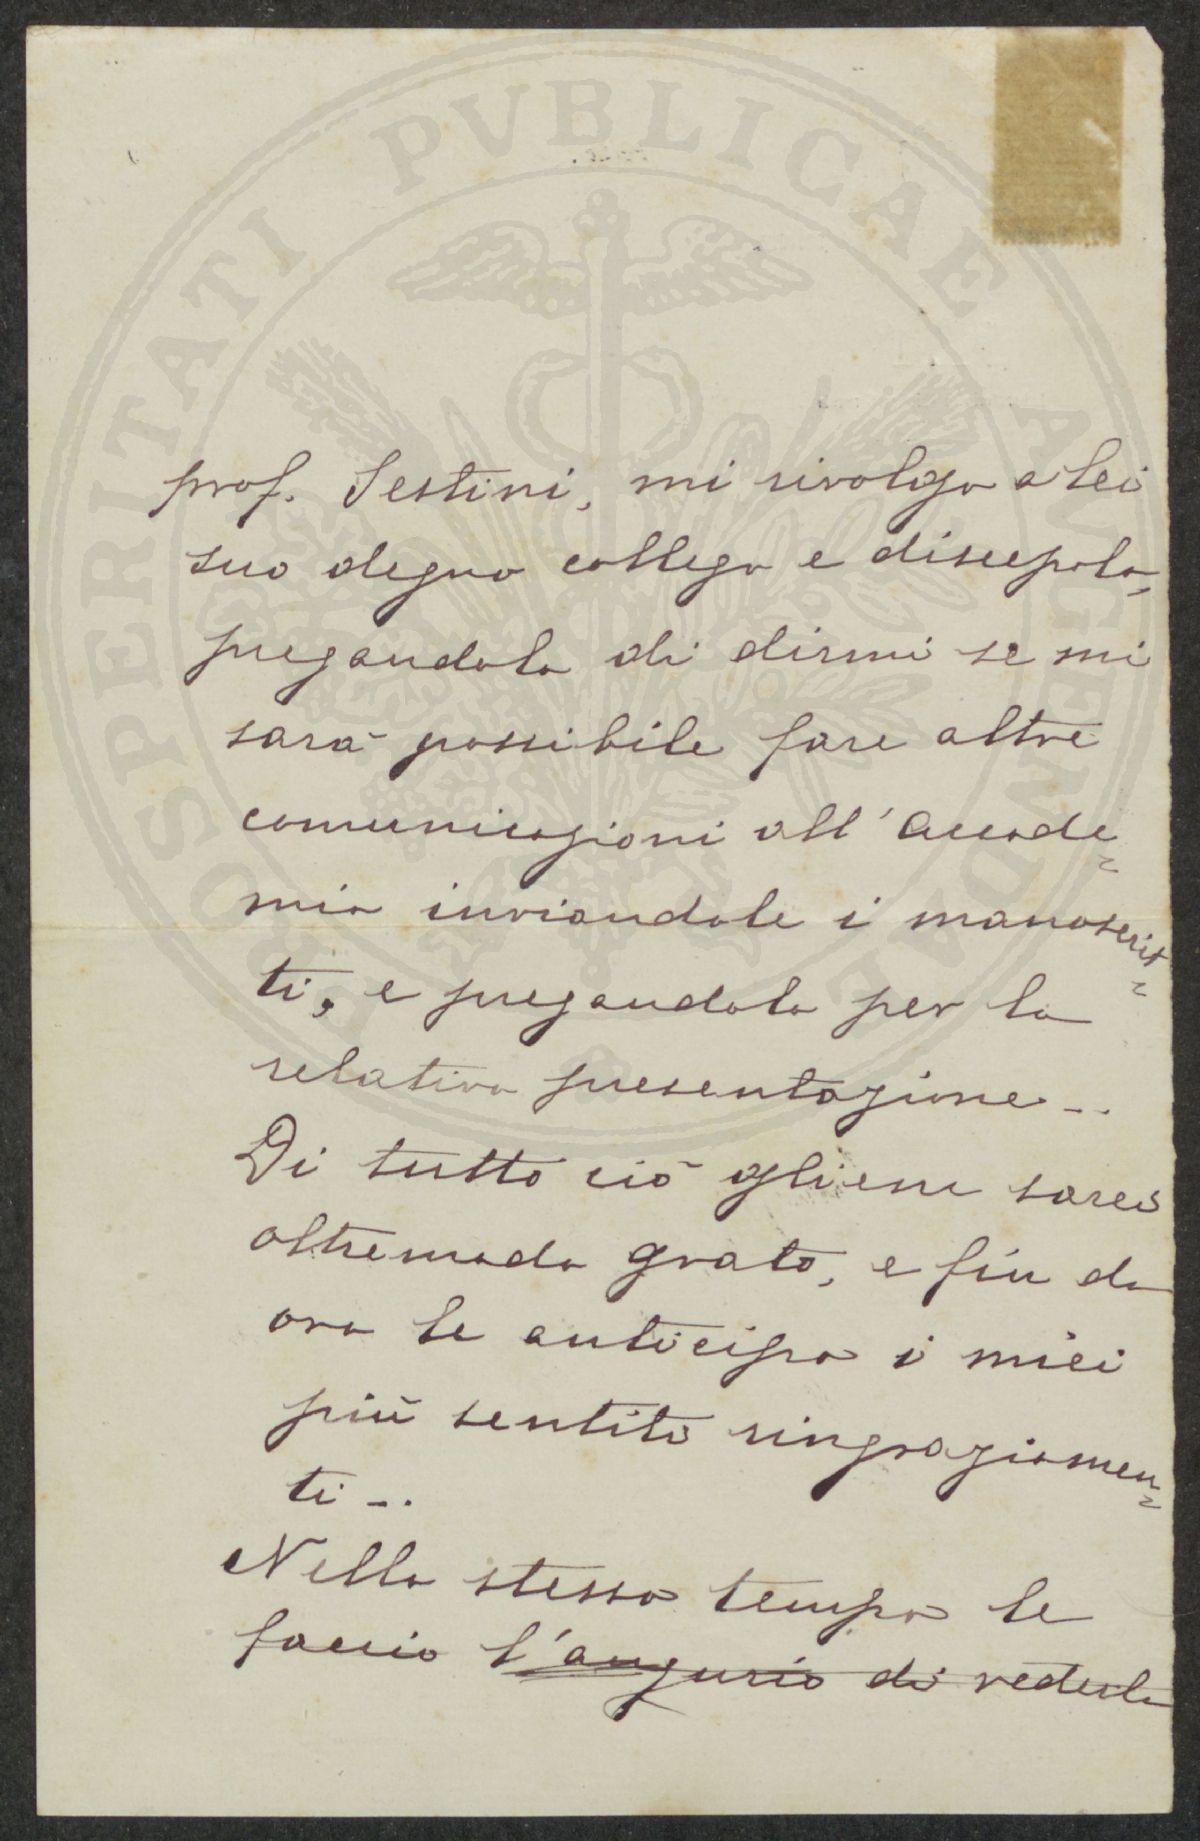 PROSPERITATI PVBLICAE AVGENDAE
prof. Sestini, mi rivolgo a lei
suo degno collega e discepolo,
pregandola di dirmi se mi
sarà possibile fare altre
comunicazioni all'Accade=
mia inviandole i manoscrit=
ti, e pregandola per la
relativa presentazione_.
Di tutto ciò gliene sarei
oltremodo grato, e fin da
ora le anticipo i miei
più sentiti ringraziamen=
ti_.
Nello stesso tempo le
faccio l'augurio di vederla